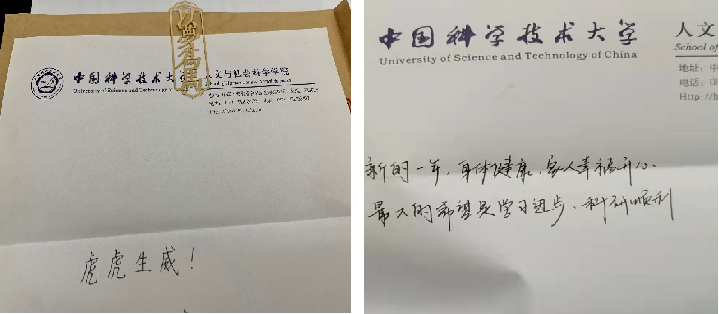 中国科学技术大学
人文与社会科学学院
University of Science and Technology of China
虎虎生威！
中国科学技术大学
人文
University of Science and Technology of China
School of
地址：中
电话：
Http://h
新的一年，身体健康、家人幸福开心、
最大的希望是学习进步、科研顺利